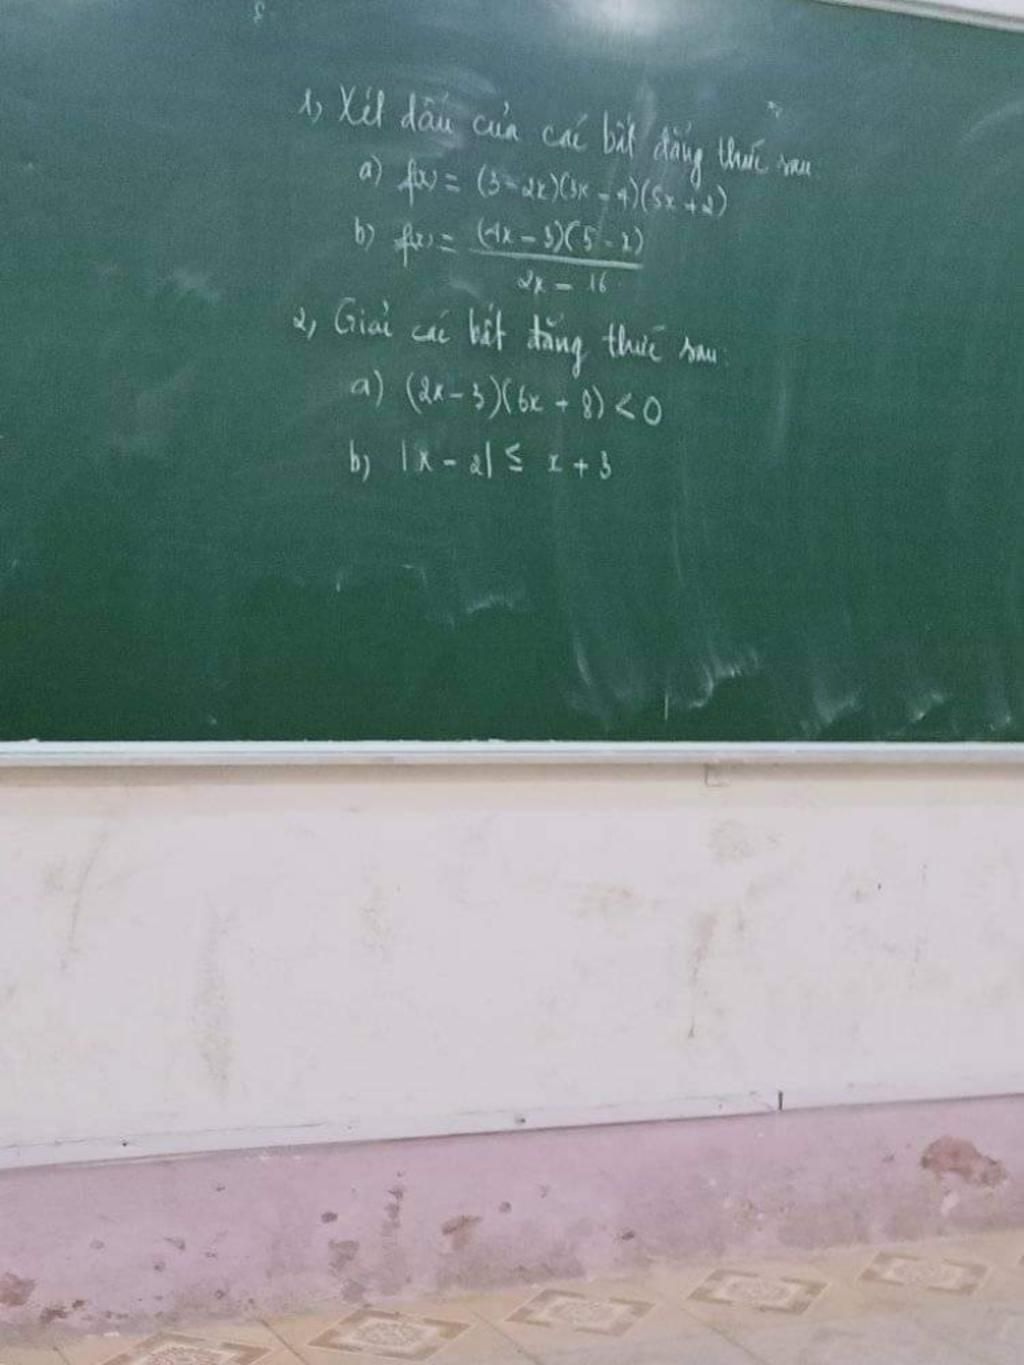 1, Xét dấu của các bất đẳng thức sau
a) f(x) = (3 - 2x)(3x - 4)(5x + 2)
b) f(x) = (4x - 3)(5 - x)
2x - 16
2, Giải các bất đẳng thức sau:
a) (2x - 3)(6x + 8) < 0
b) |x - 2| ≤ x + 3